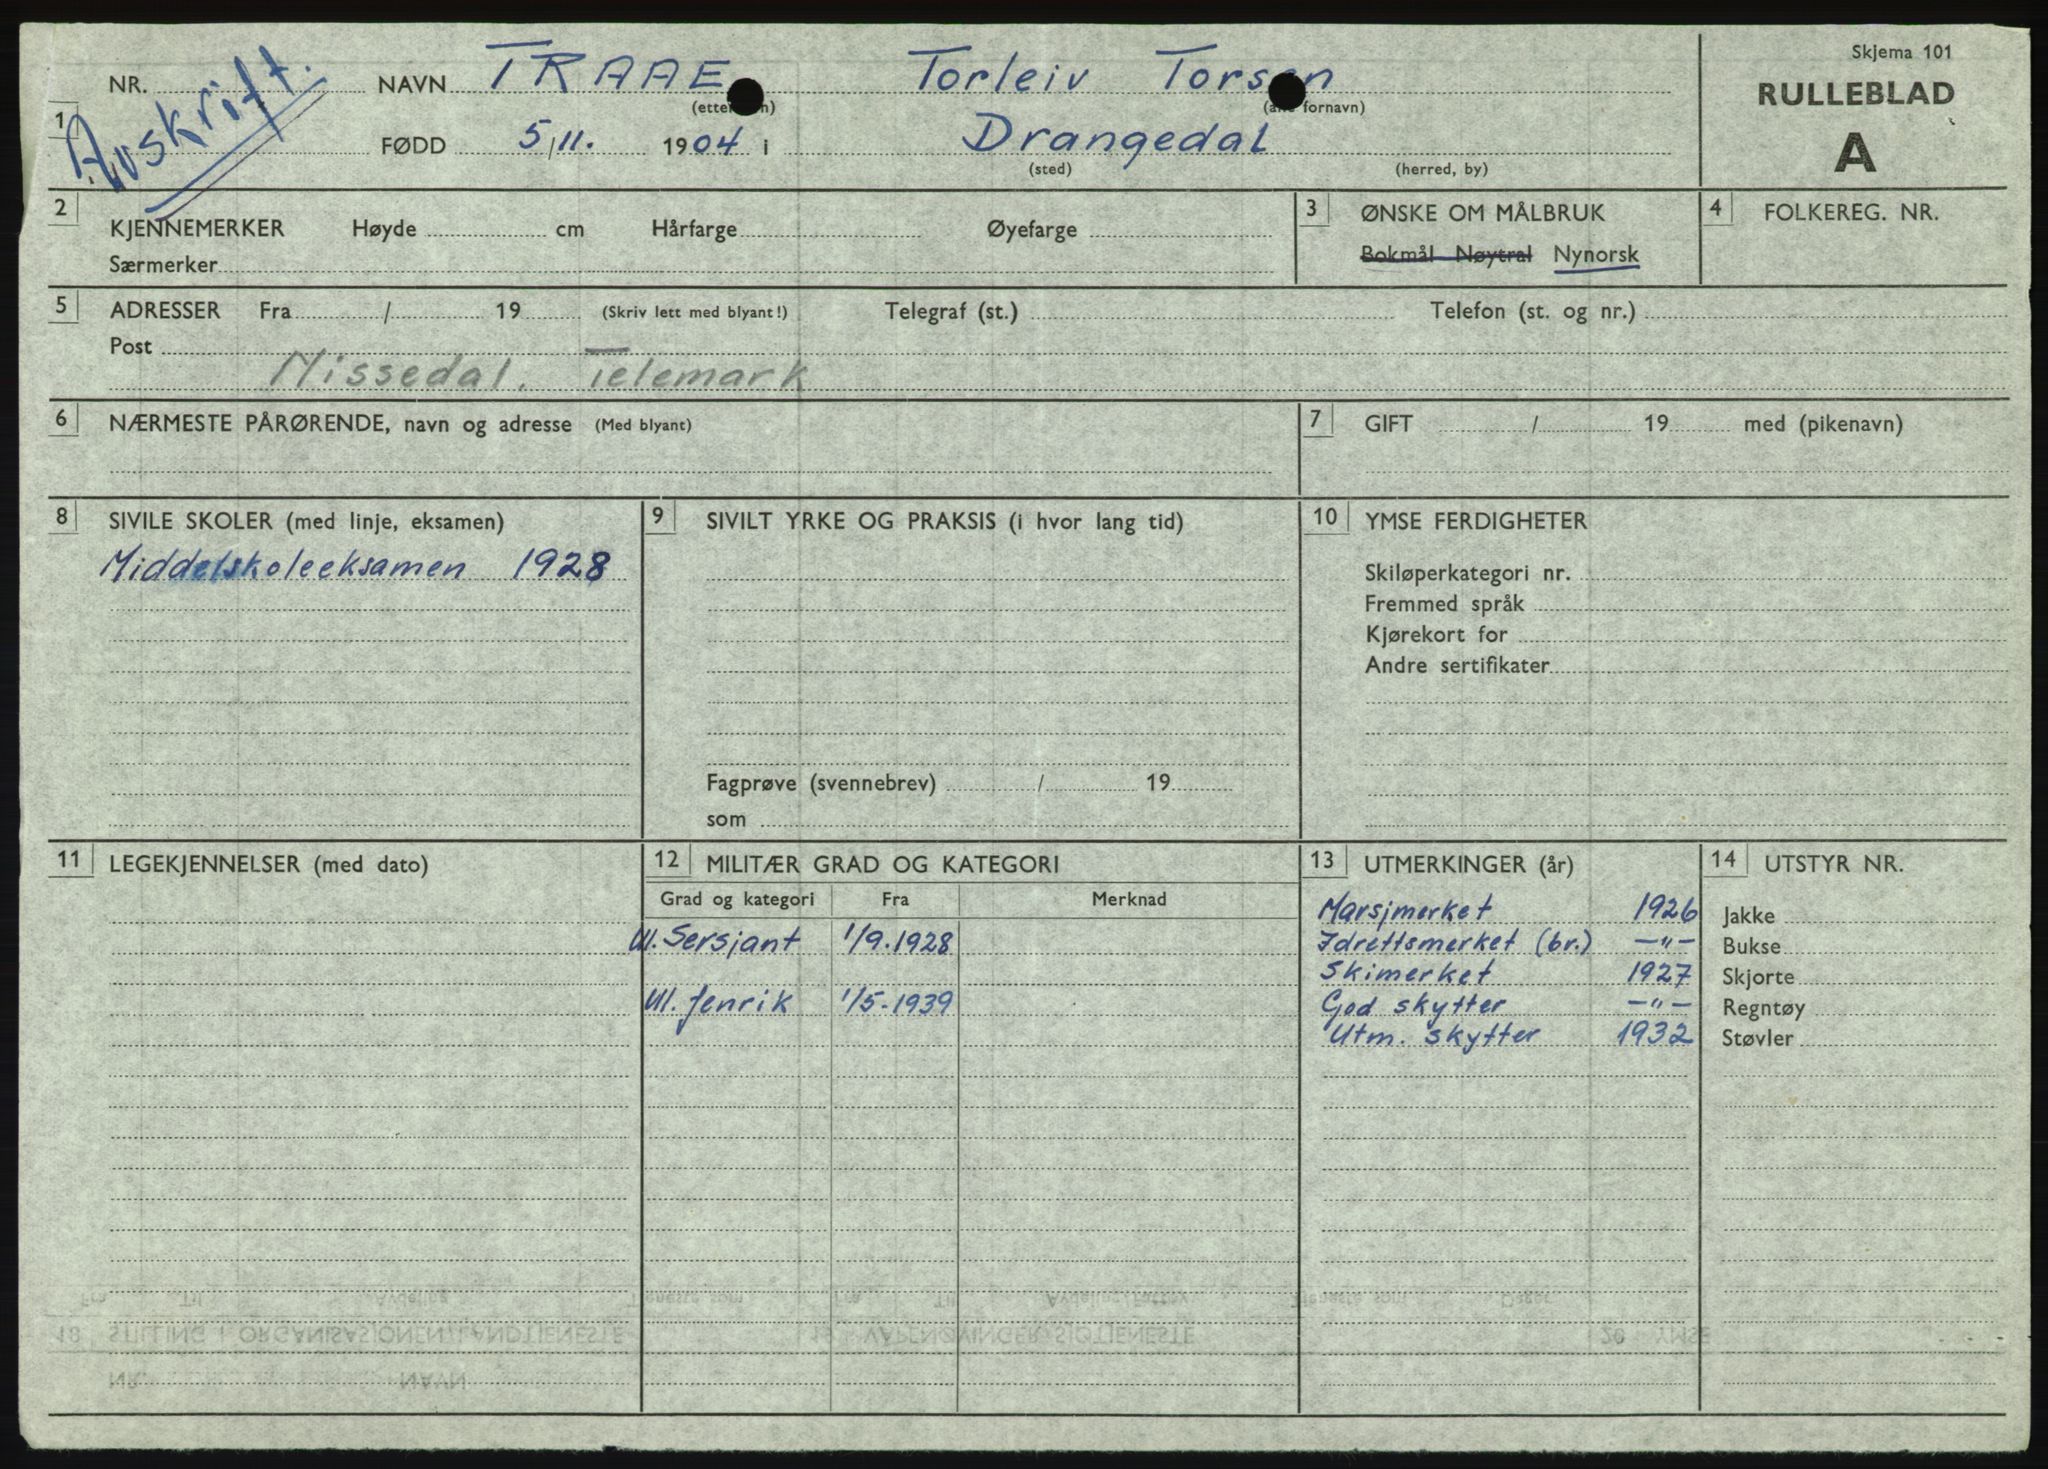 Skjema 101
RULLEBLAD
A
Avskrift.
1 NR. NAVN TRAAE Torleiv Torsen
(alle fornavn)
FØDD 5/11. 1904 i Drangedal
(sted) (herred, by)
2 KJENNEMERKER Høyde cm Hårfarge Øyefarge
Særmerker
3 ØNSKE OM MÅLBRUK
Bokmål Nøytral Nynorsk
4 FOLKEREG. NR.
5 ADRESSER Fra / 19 (Skriv lett med blyant!) Telegraf (st.) Telefon (st. og nr.)
Post
Nissedal. Telemark
6 NÆRMESTE PÅRØRENDE, navn og adresse (Med blyant)
7 GIFT / 19 med (pikenavn)
8 SIVILE SKOLER (med linje, eksamen)
Middelskoleeksamen 1928
9 SIVILT YRKE OG PRAKSIS (i hvor lang tid)
Fagprøve (svennebrev) / 19
som
10 YMSE FERDIGHETER
Skiløperkategori nr.
Fremmed språk
Kjørekort for
Andre sertifikater
11 LEGEKJENNELSER (med dato)
12 MILITÆR GRAD OG KATEGORI
Grad og kategori Fra Merknad
Vl. Sersjant 1/9.1928
Vl. fenrik 1/5-1939
13 UTMERKINGER (år)
Marsjmerket 1926
Idrettsmerket (br.) —"—
Skimerket 1927
God skytter —"—
Utm. skytter 1932
14 UTSTYR NR.
Jakke
Bukse
Skjorte
Regntøy
Støvler